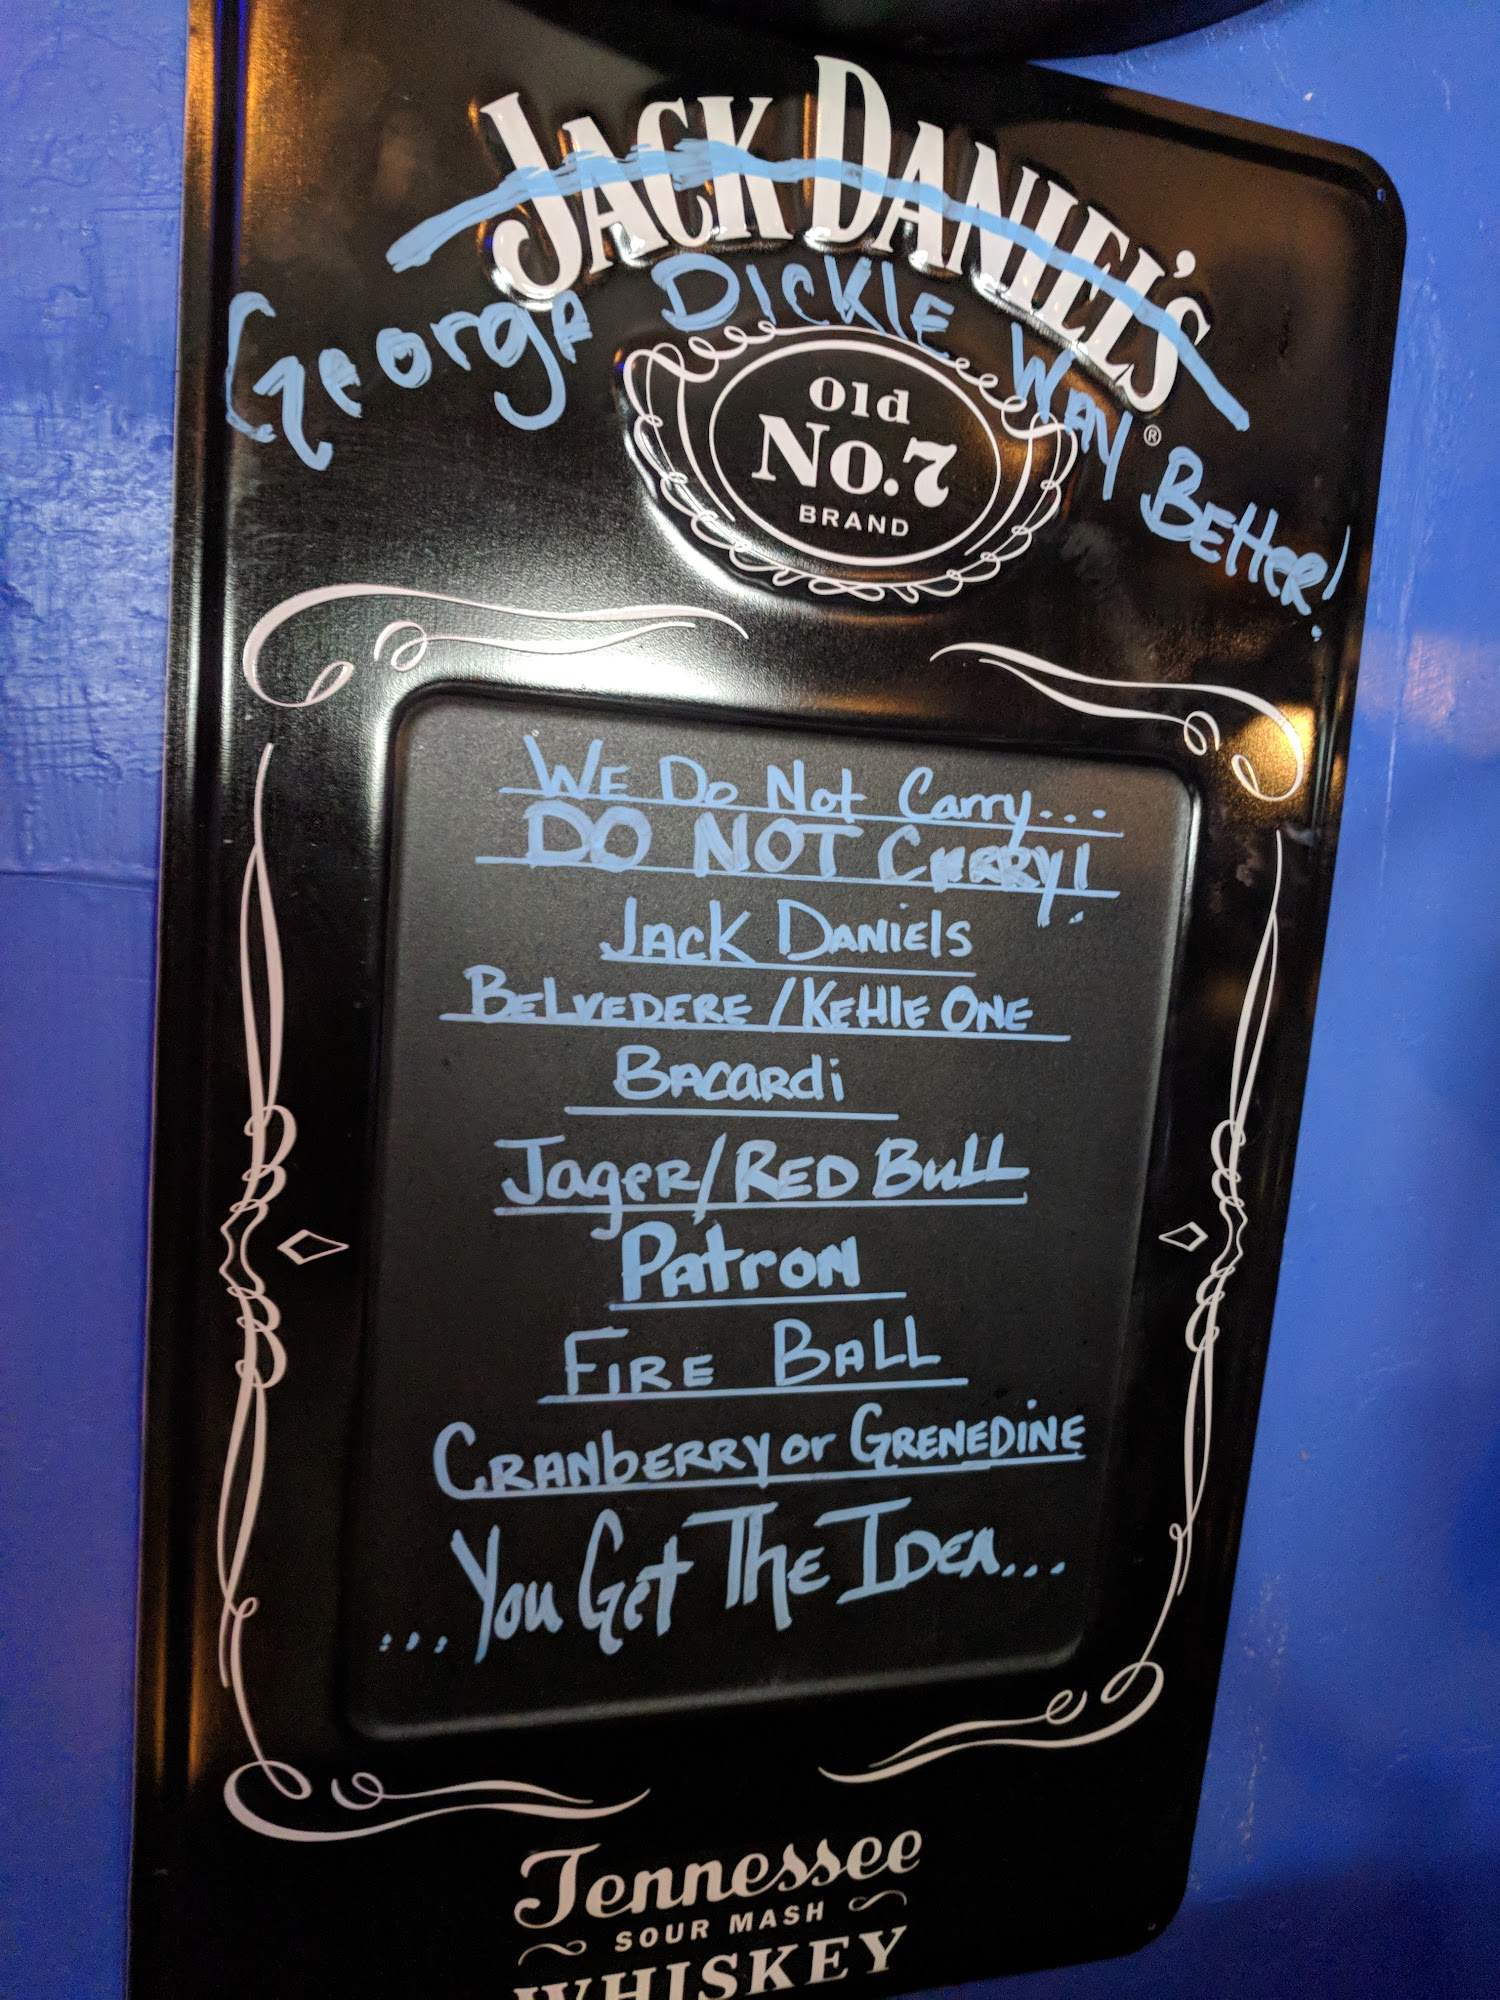 JACK DANIEL'S
George DICKLE WAY BETTER!
Old
No.7
BRAND
®
WE Do Not Carry...
DO NOT CARRY!
JACK DANIELS
BELVEDERE / KETTLE ONE
BACARDI
JAGER/RED BULL
PATRON
FIRE BALL
CRANBERRY or GRENEDINE
...You Get THE IDEA...
Tennessee
SOUR MASH
WHISKEY